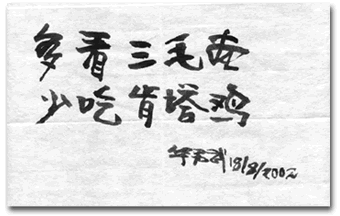 多看三毛
少吃肯塔鸡
华君武 18/8/2002